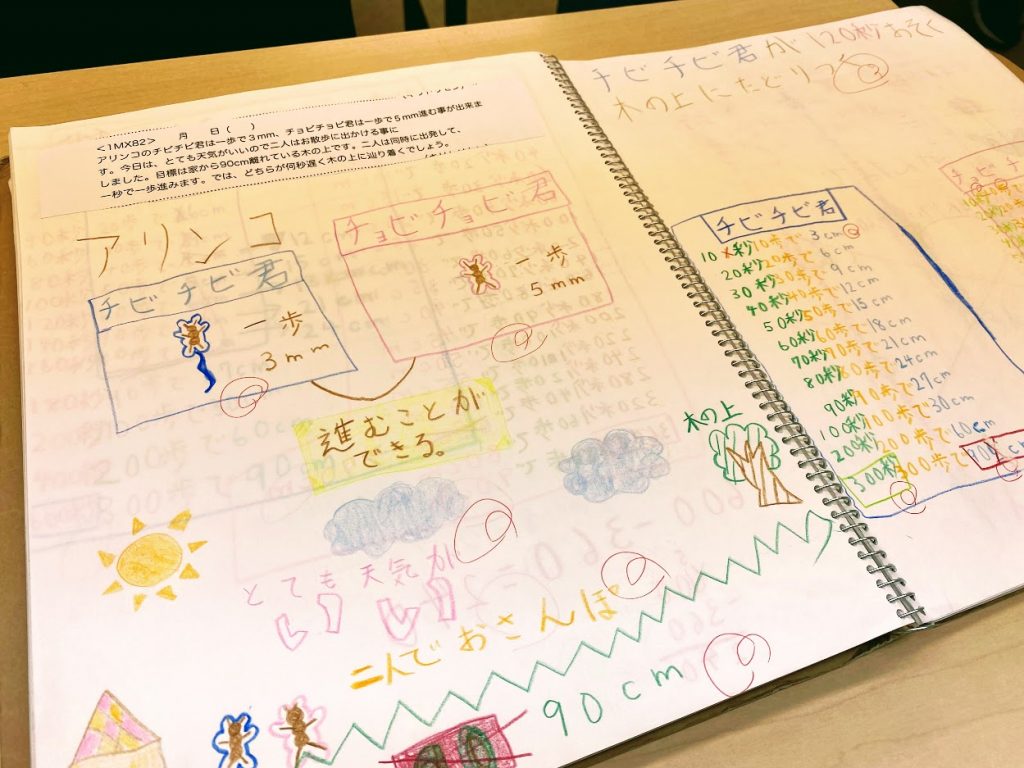 <1MX82> 月 日( )
アリンコのチビチビ君は一歩で3mm、チョビチョビ君は一歩で5mm進む事が出来ま
す。今日は、とても天気がいいので二人はお散歩に出かける事に
しました。目標は家から90cm離れている木の上です。二人は同時に出発して、
一秒で一歩進みます。では、どちらが何秒遅く木の上に辿り着くでしょう。
アリンコ
チビチビ君
一歩
3mm
チョビチョビ君
一歩
5mm
進むことが
できる。
木の上
とても天気が
二人でおさんぽ
90cm
チビチビ君が120秒おそく
木の上にたどりつく
チビチビ君
10秒10歩で3cm
20秒20歩で6cm
30秒30歩で9cm
40秒40歩で12cm
50秒50歩で15cm
60秒60歩で18cm
70秒70歩で21cm
80秒80歩で24cm
90秒90歩で27cm
100秒100歩で30cm
200秒200歩で60cm
300秒300歩で90cm